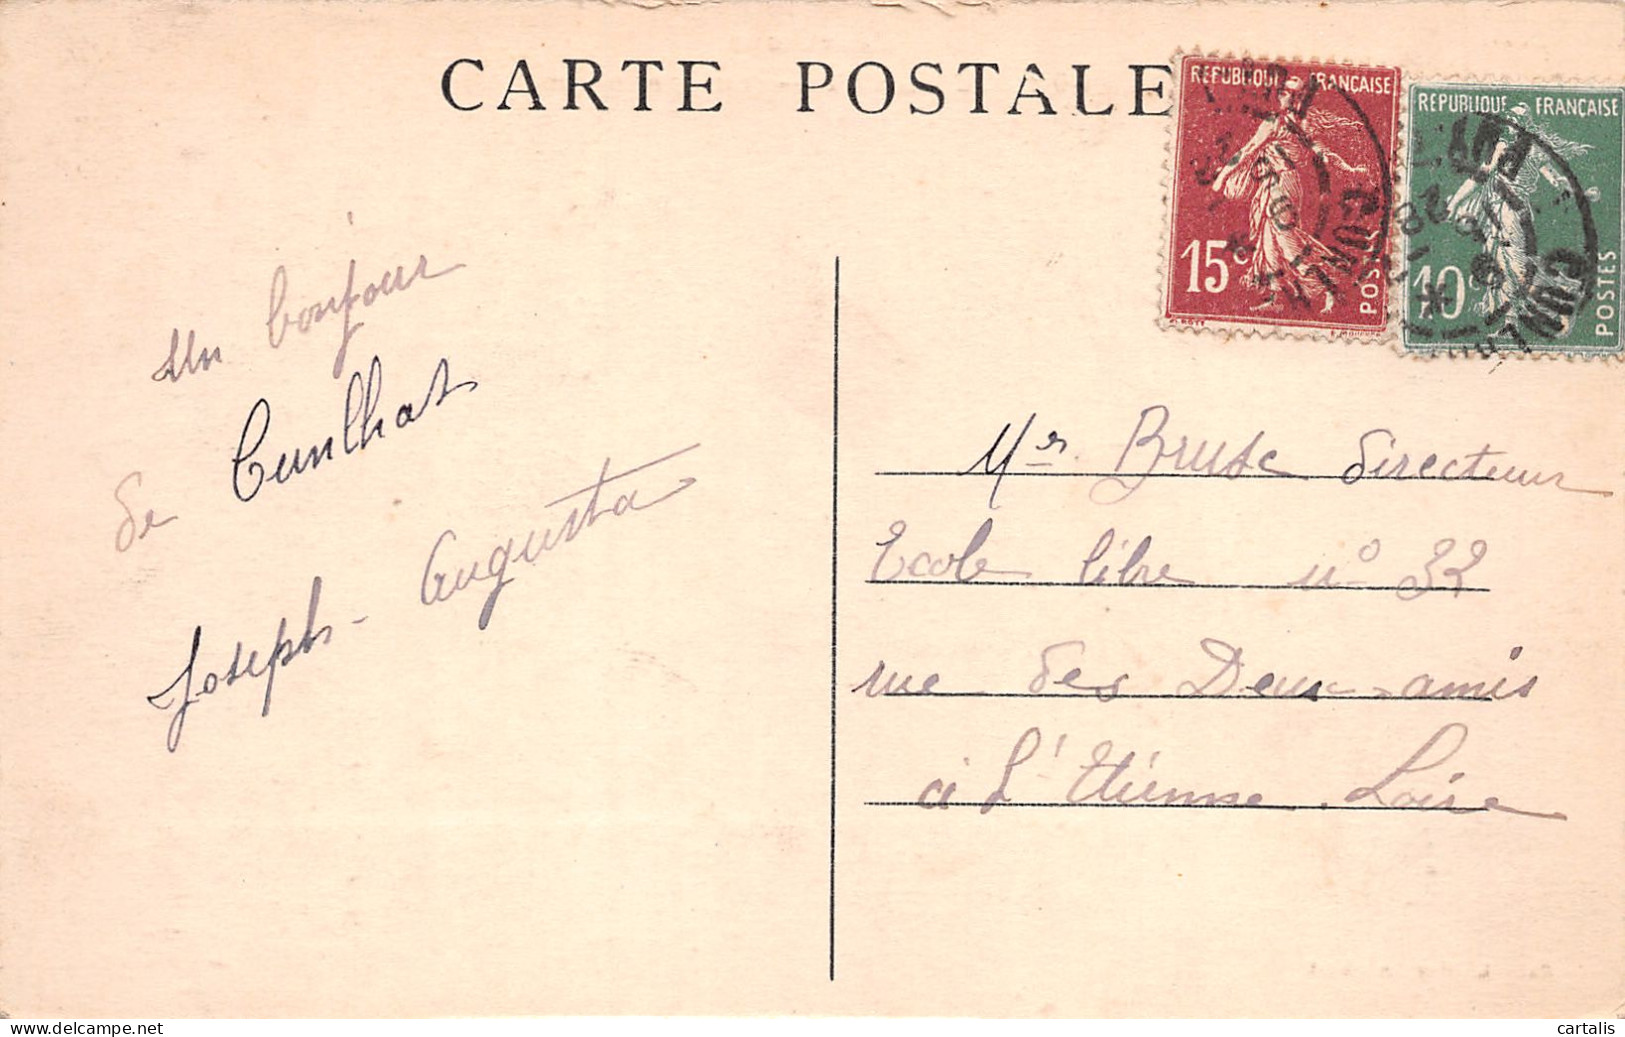 CARTE POSTALE
REPUBLIQUE FRANÇAISE
15c
POSTES
REPUBLIQUE FRANÇAISE
10c
POSTES
CUNLHAT
PUY
Un bonjour
de Cunlhat
Joseph - Augusta
Mr Bruse directeur
Ecole libre n° 32
rue des Deux-amis
à St Etienne. Loire
cartalis